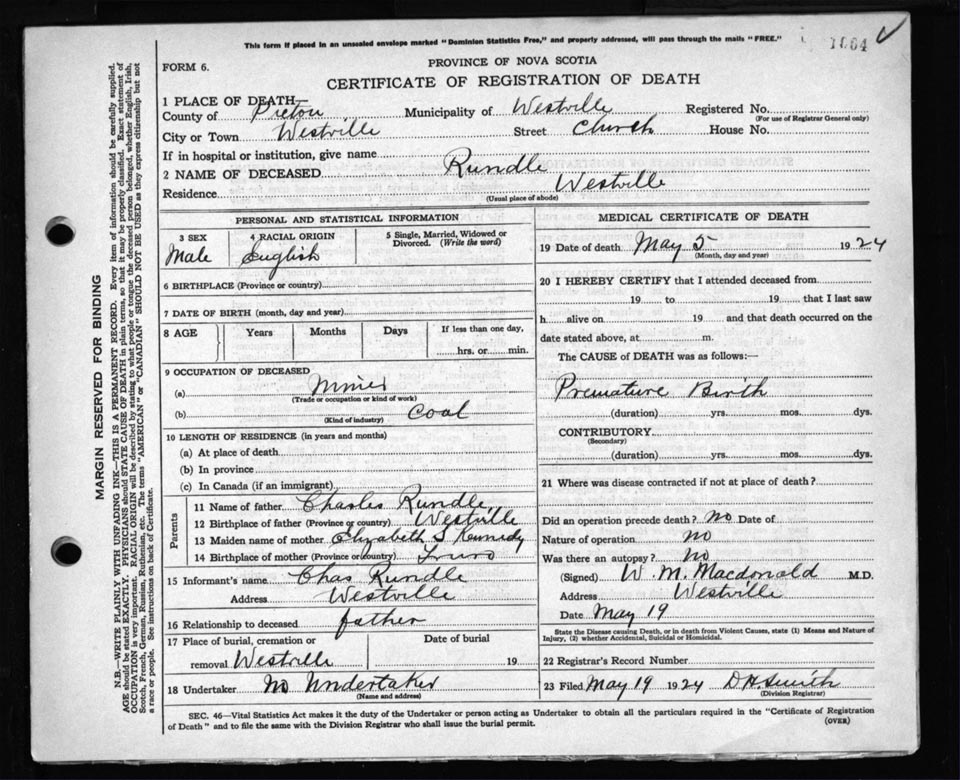 This form if placed in an unsealed envelope marked "Dominion Statistics Free," and properly addressed, will pass through the mails "FREE."
1664
FORM 6.
PROVINCE OF NOVA SCOTIA
CERTIFICATE OF REGISTRATION OF DEATH
1 PLACE OF DEATH
County of Pictou Municipality of Westville Registered No.
(For use of Registrar General only)
City or Town Westville Street Church House No.
If in hospital or institution, give name
2 NAME OF DECEASED Rundle
Residence Westville
(Usual place of abode)
PERSONAL AND STATISTICAL INFORMATION
3 SEX 4 RACIAL ORIGIN 5 Single, Married, Widowed or Divorced. (Write the word)
Male English
6 BIRTHPLACE (Province or country)
7 DATE OF BIRTH (month, day and year)
8 AGE Years Months Days If less than one day,
hrs. or min.
9 OCCUPATION OF DECEASED
(a) Miner
(Trade or occupation or kind of work)
(b) Coal
(Kind of industry)
10 LENGTH OF RESIDENCE (in years and months)
(a) At place of death
(b) In province
(c) In Canada (if an immigrant)
Parents
11 Name of father Charles Rundle
12 Birthplace of father (Province or country) Westville
13 Maiden name of mother Elizabeth S Kennedy
14 Birthplace of mother (Province or country) Truro
15 Informant's name Chas Rundle
Address Westville
16 Relationship to deceased father
17 Place of burial, cremation or Date of burial
removal Westville 19
18 Undertaker No Undertaker
(Name and address)
MEDICAL CERTIFICATE OF DEATH
19 Date of death May 5 1924
(Month, day and year)
20 I HEREBY CERTIFY that I attended deceased from
19 to 19 that I last saw
h alive on 19 and that death occurred on the
date stated above, at m.
The CAUSE of DEATH was as follows:—
Premature Birth
(duration) yrs. mos. dys.
CONTRIBUTORY
(Secondary)
(duration) yrs. mos. dys.
21 Where was disease contracted if not at place of death?
Did an operation precede death? No Date of
Nature of operation no
Was there an autopsy? No
(Signed) W. M. Macdonald M.D.
Address Westville
Date May 19
State the Disease causing Death, or in death from Violent Causes, state (1) Means and Nature of
Injury, (2) whether Accidental, Suicidal or Homicidal.
22 Registrar's Record Number
23 Filed May 19 1924 D H Smith
(Division Registrar)
SEC. 46—Vital Statistics Act makes it the duty of the Undertaker or person acting as Undertaker to obtain all the particulars required in the "Certificate of Registration
of Death" and to file the same with the Division Registrar who shall issue the burial permit.
(OVER)
MARGIN RESERVED FOR BINDING
N.B.—WRITE PLAINLY WITH UNFADING INK—THIS IS A PERMANENT RECORD. Every item of information should be carefully supplied.
AGE should be stated EXACTLY. PHYSICIANS should STATE CAUSE OF DEATH in plain terms, so that it may be properly classified. Exact statement of
OCCUPATION is very important. RACIAL ORIGIN will be described by stating to what people or tongue the deceased person belonged, whether English, Irish,
Scotch, French, German, Russian, Ruthenian, etc. The terms "AMERICAN" or "CANADIAN" SHOULD NOT BE USED as they express citizenship but not
a race or people. See instructions on back of Certificate.